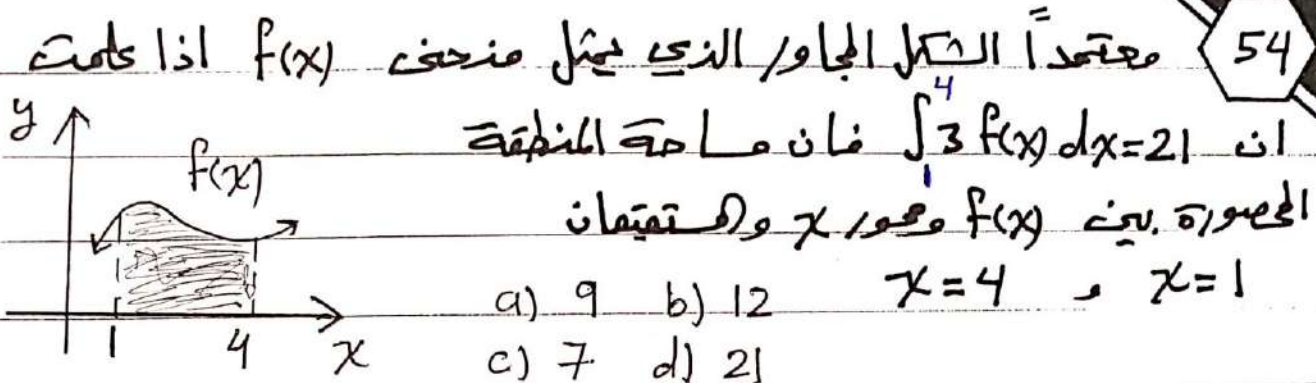 54 معتمداً الشكل المجاور الذي يمثل منحنى f(x) اذا علمت
ان ∫₁⁴ 3 f(x) dx=21 فان مساحة المنطقة
المحصورة بين f(x) ومحور x والمستقيمان
x=1 و x=4
a) 9 b) 12
c) 7 d) 21
y
f(x)
1 4 x